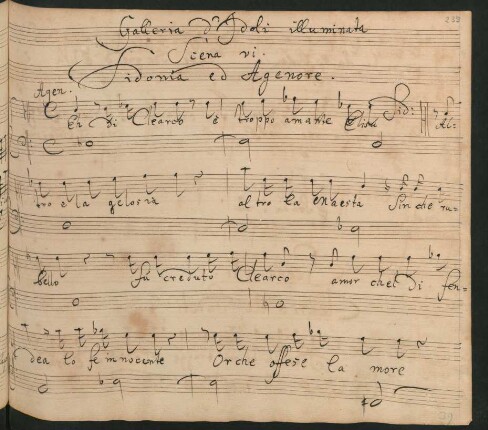 Galleria d'Idoli illuminata
Scena vi.
Sidonia ed Agenore.
Agen.
Sid:
Di Clearco è troppo amante Al=
tro e la gelosia altro la Sin che ru=
bello fu creduto Clearco amor chel di fen=
dea lo fe innocente Or che offese la more